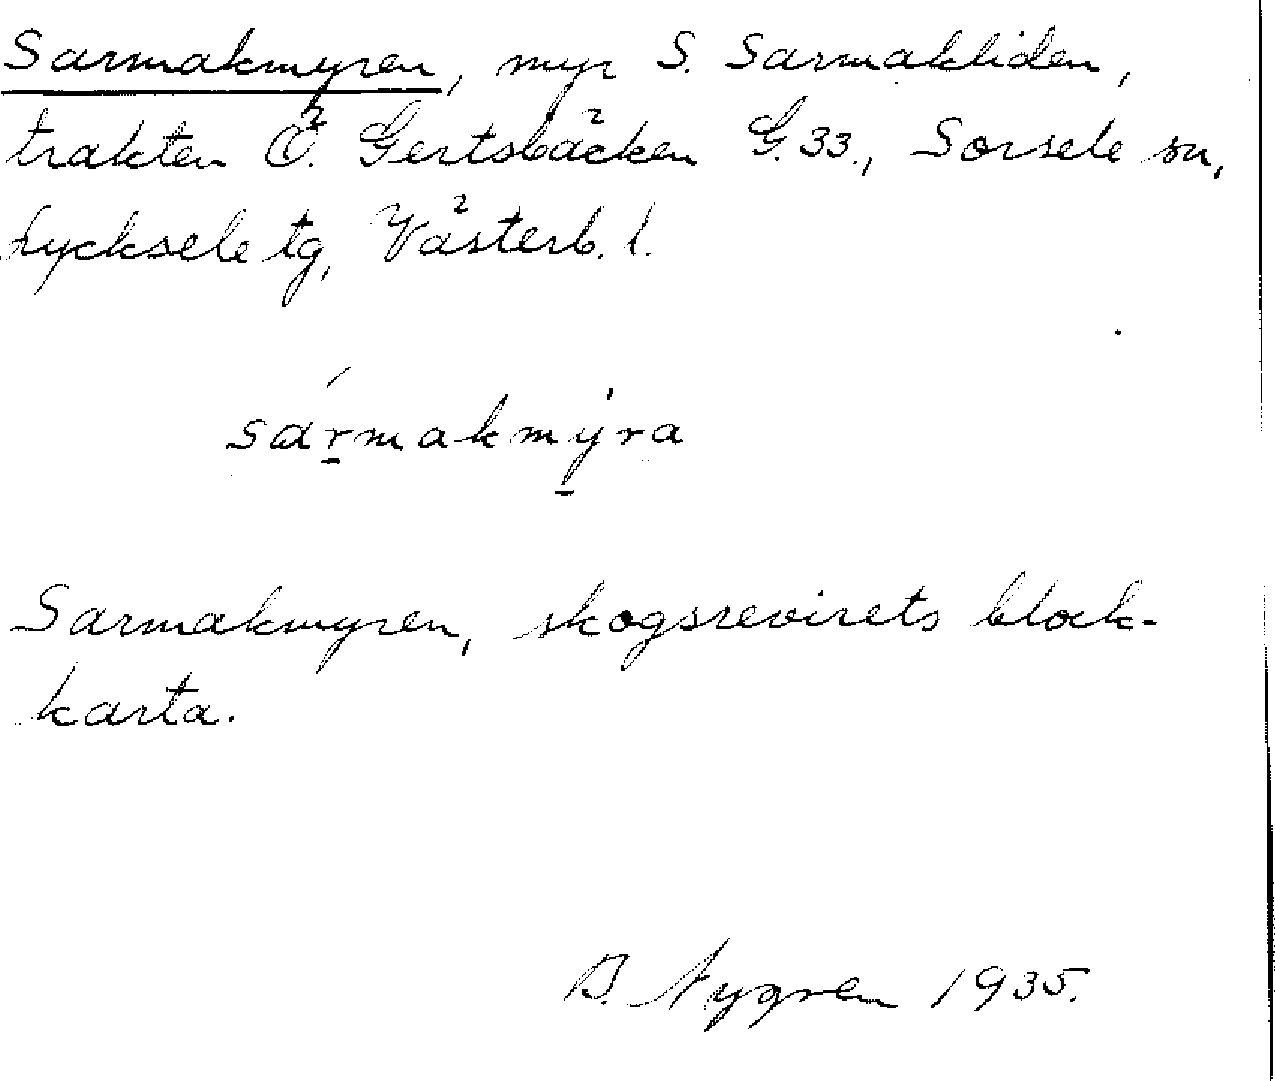 Sarmakmyren, myr S. Sarmakliden,
trakten Ö. Gertsbäcken G. 33., Sorsele sn,
Lycksele tg, Västerb. l.
sármakmýra
Sarmakmyren, skogsrevirets block-
karta.
B. Nygren 1935.